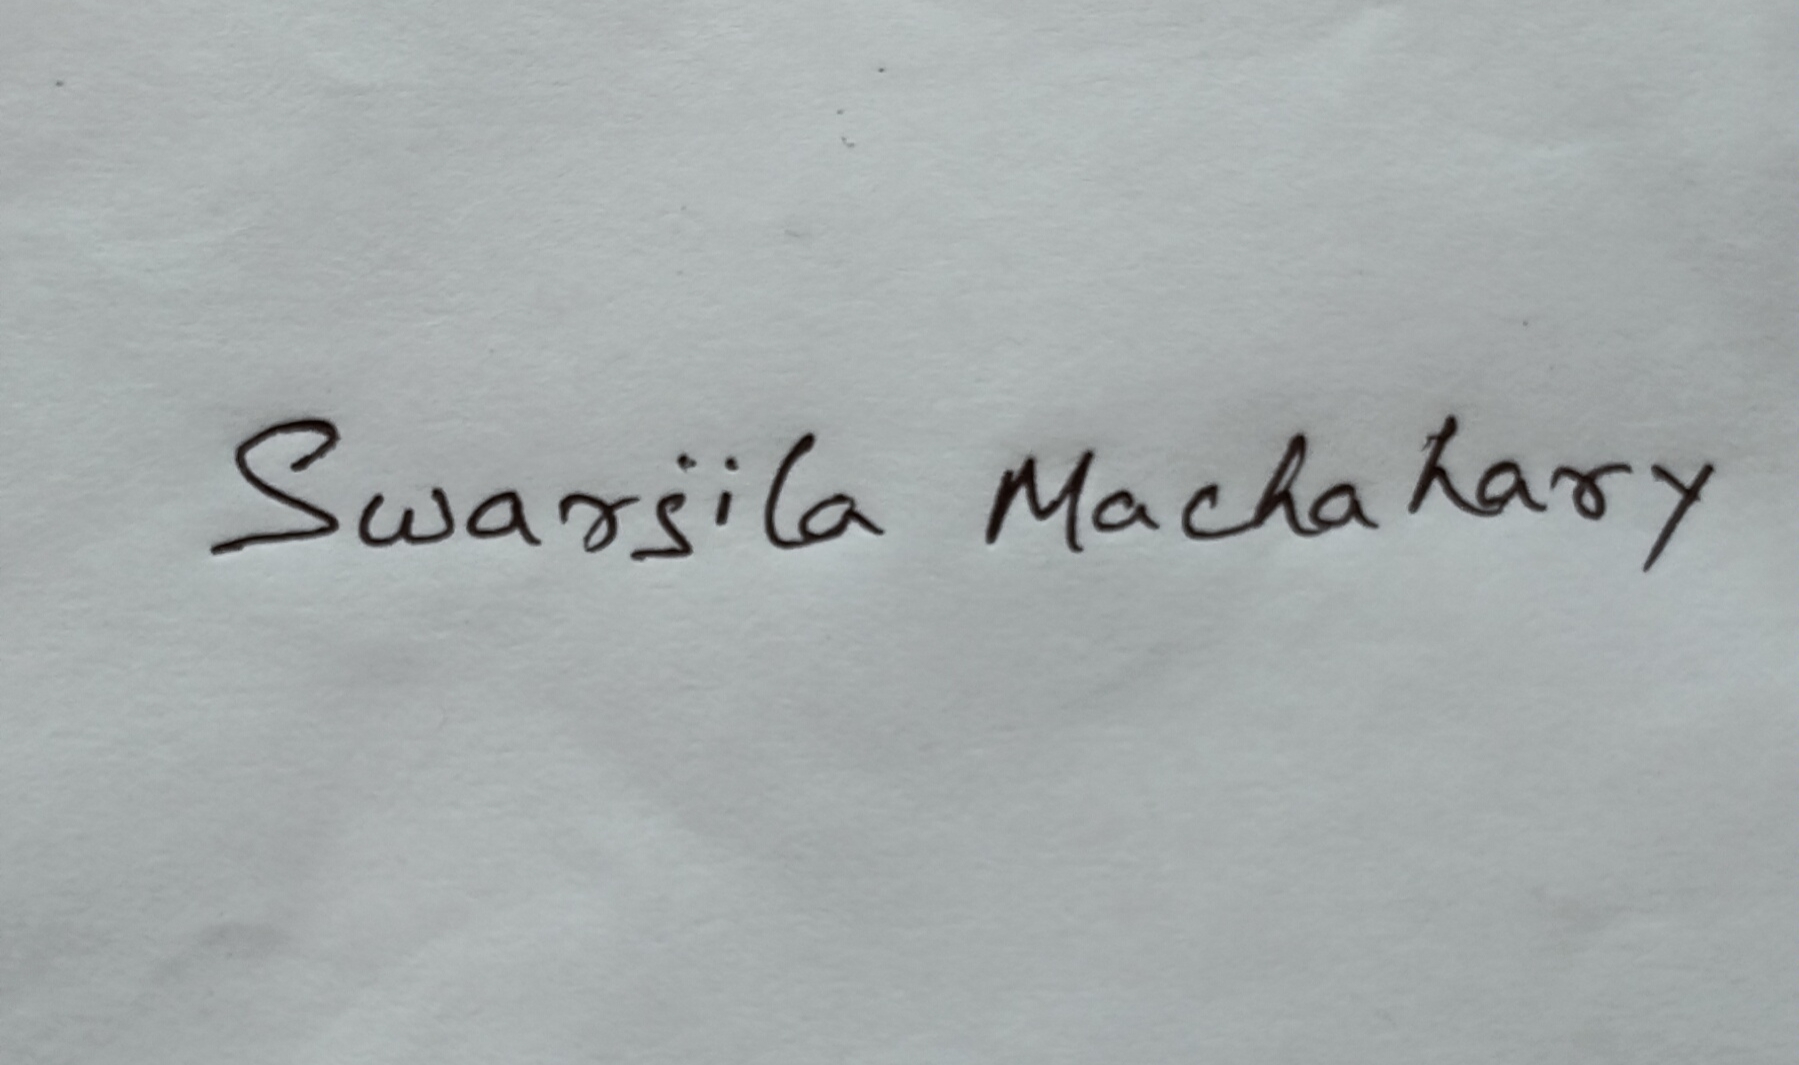 Swarsila Machahary